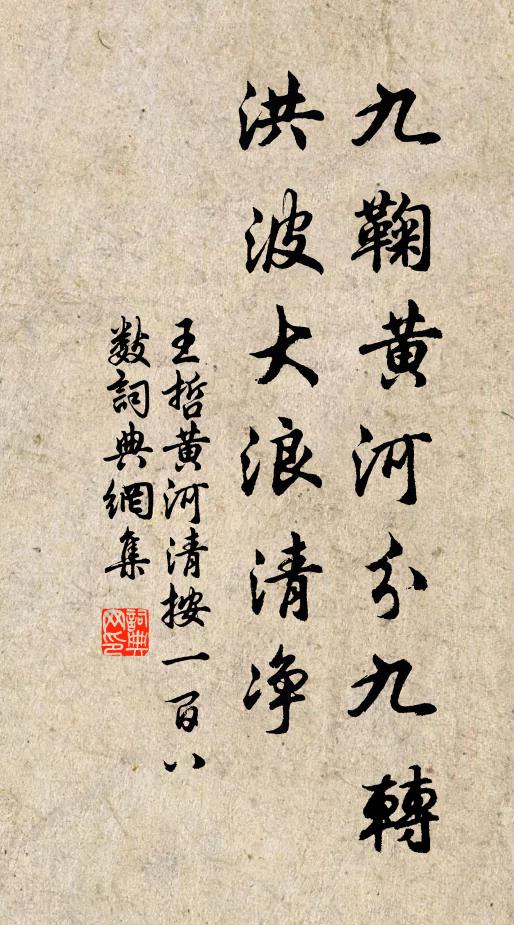 九鞠黄河分九轉
洪波大浪清净
王哲黄河清按一百八
數詞典網集
詞典網印